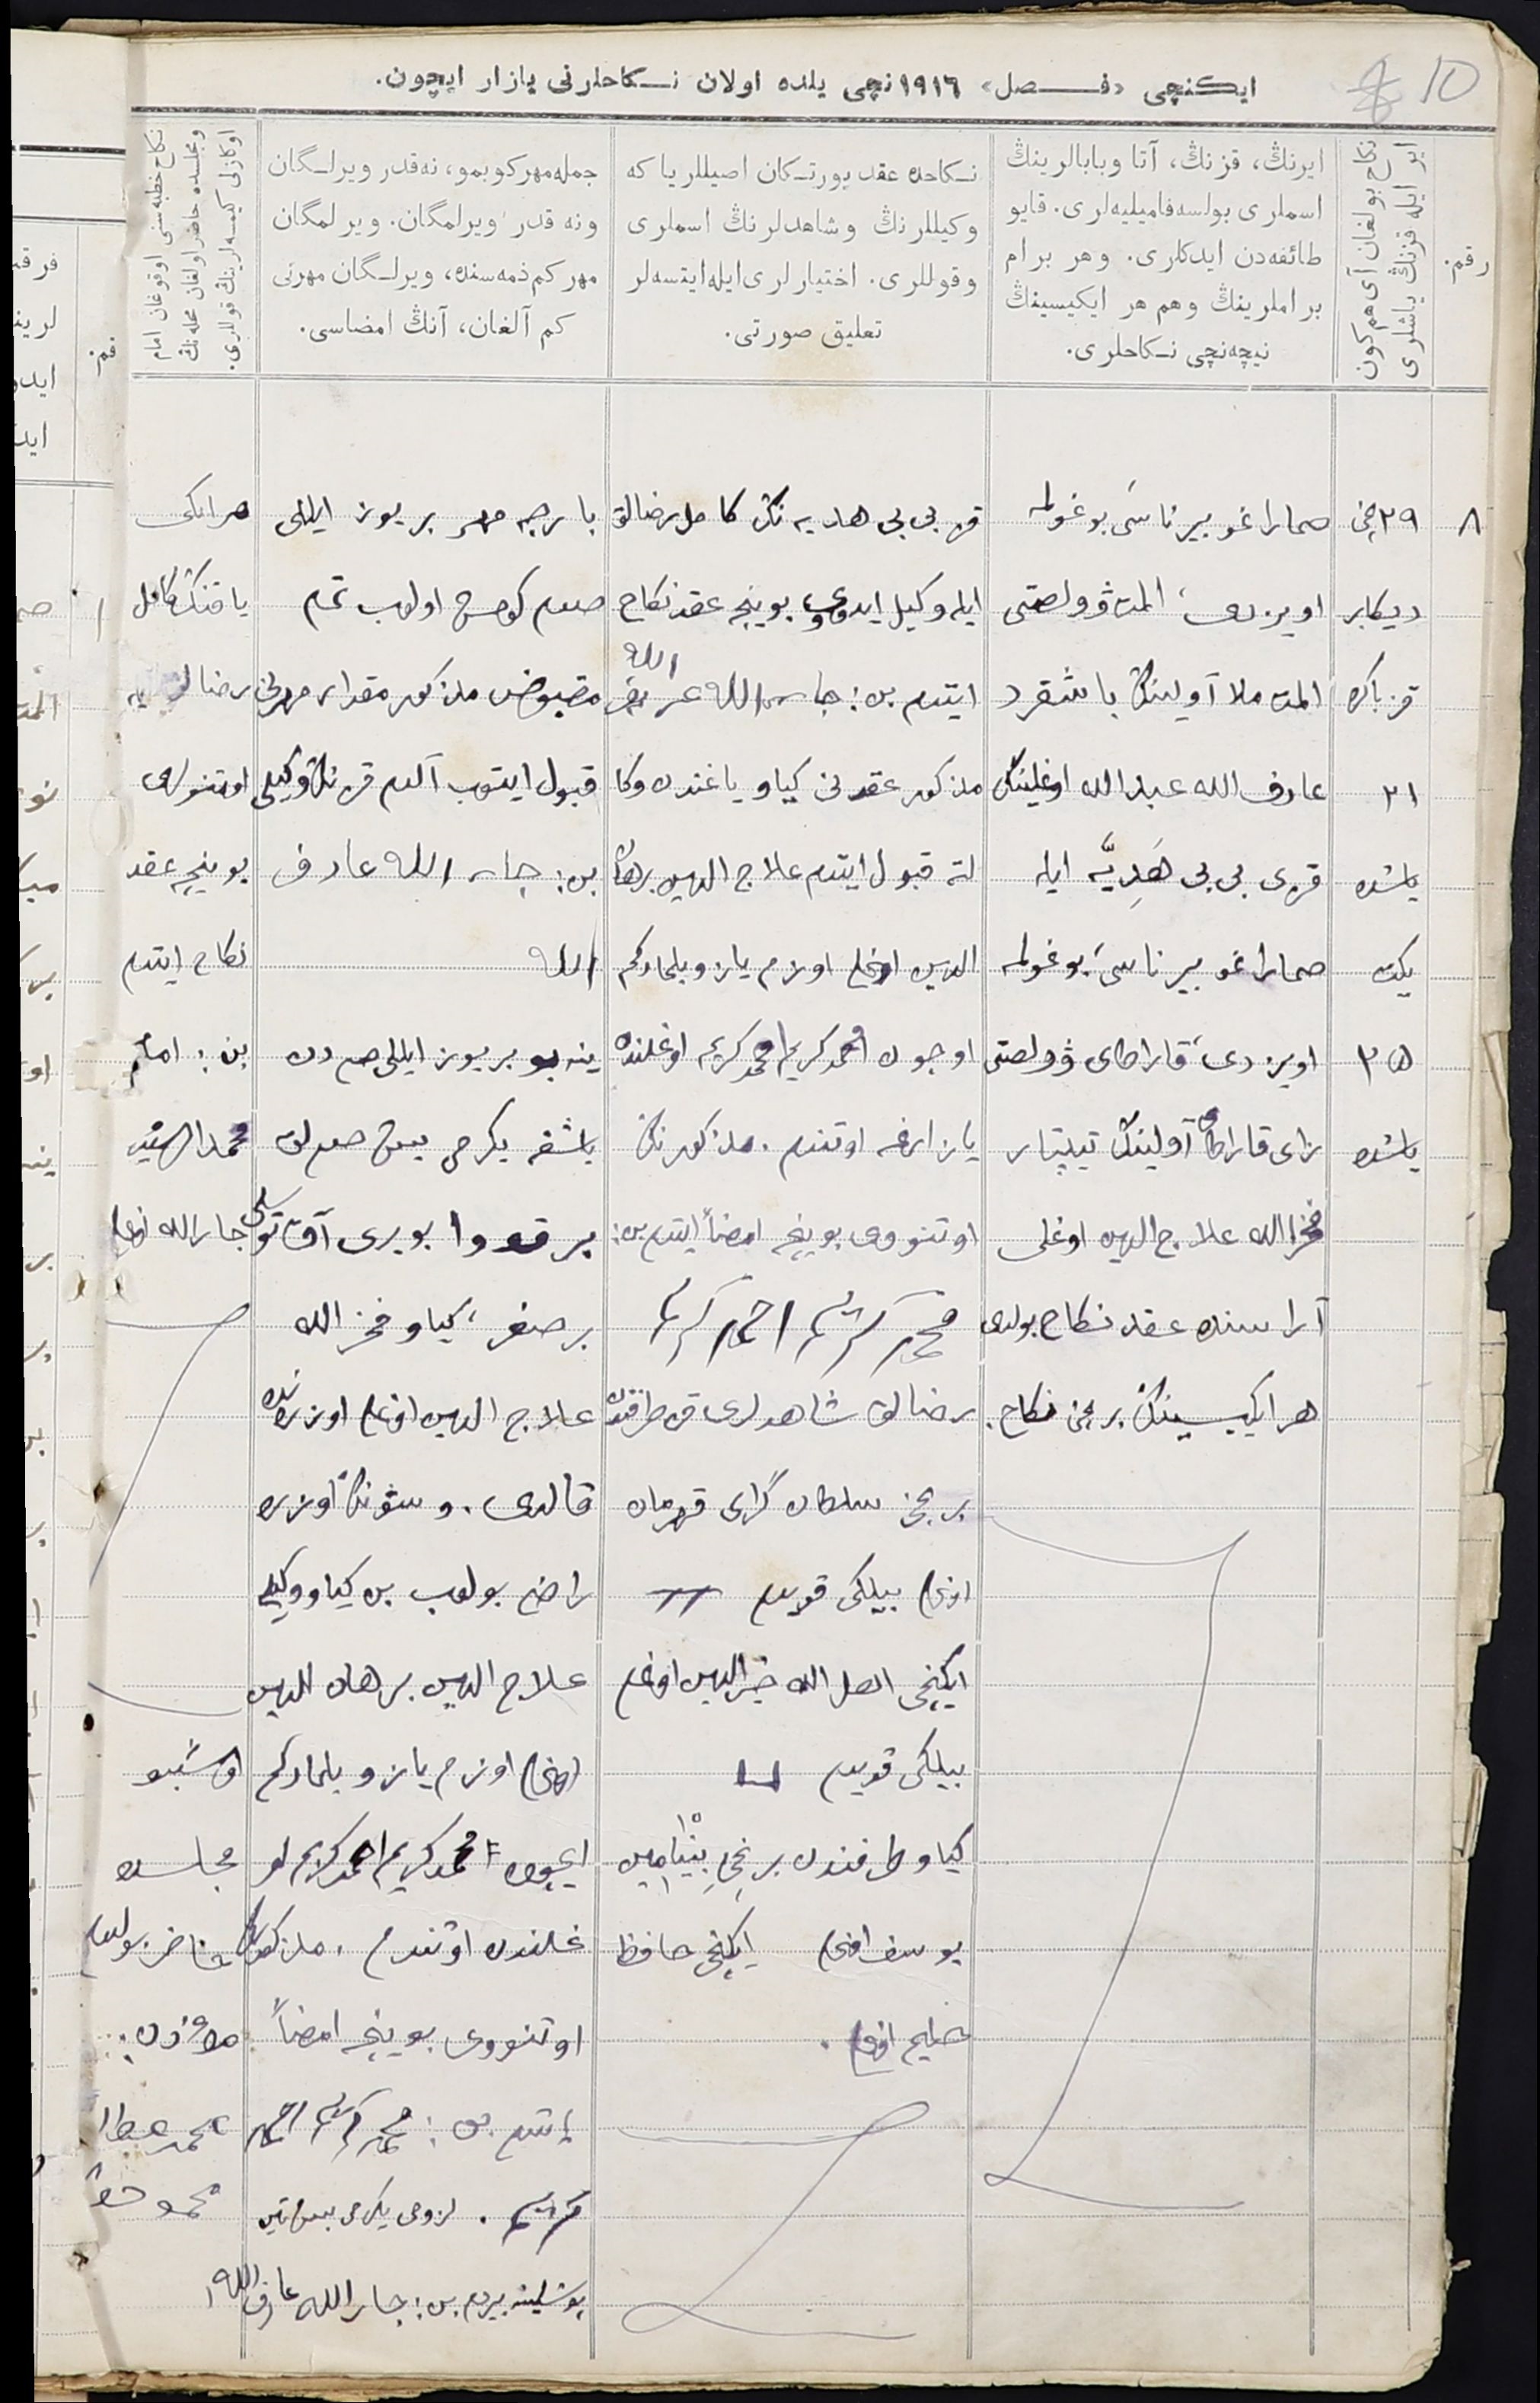 10
ایكنچی «فـصل» ١٩١٦ نچی یلده اولان نـكاحلرنی یازار ایچون.
رقم.
نكاح بولغان آی هم كون
ایر ایله قزنڭ یاشلری
ایرنڭ، قزنڭ، آتا وبابالرینڭ
اسملری بولسه فامیلیه‌لری. قایو
طائفه‌دن ایدكلری. وهر برام
براملرینڭ وهم هر ایكیسینڭ
نیچه‌نچی نـكاحلری.
نـكاحده عقد یورتـكان اصیللر یا كه
وكیللرنڭ وشاهدلرنڭ اسملری
وقوللری. اختیارلری ایله ایتسه‌لر
تعلیق صورتی.
جمله مهر كوبمو، نه‌قدر ویرلـگان
ونه قدر ویرلمگان. ویرلمگان
مهر كم ذمه‌سنده، ویرلـگان مهرنی
كم آلغان، آنڭ امضاسی.
نكاح خطبه‌سنی اوقوغان امام
ومجلسده حاضر اولغان محله‌نڭ
اوكازلی كیمسه‌لرینڭ قوللری.
٨
٢٩ نچی
دیكابر
قز باكره
٢١
یاشده
یكت
٢٥
یاشده
صمارا غوبیرناسی بوغولمه
اویزدی، المت ڤولصتی
المت ملا آولینڭ باشقرد
عارف الله عبدالله اوغلینڭ
قزی بی بی هَدِیَّه ایله
صمارا غوبیرناسی بوغولمه
اویزدی، قاراطای ڤولصتی
زای قاراطای آولینڭ تیپتار
فخرالله علاج الدین اوغلی
آراسنده عقد نكاح بولدی
هر ایكیسینڭ برنچی نكاح.
قز بی بی هدیه نڭ كامل رضالق
ایله وكیل ایدوی بوینچه عقد نكاح
ایتدم بن: جارالله عارف الله
مذكور عقدنی كیاو یاغندن وكا
لة قبول ایتدم علاج الدین برهان
الدین اوغلی اوزم یازو بلمادكم
اوچون محمدكریم احمدكریم اوغلنده
یازارغه اوتندم. مذكورنڭ
اوتنووی بوینچه امضاً ایتدم بن:
محمدكریم احمدكریم
رضالق شاهدلری قز طرفندن
برنچی سلطان گرای قهرمان
اوغلی بیلكی قویدم
ایكنچی اهل الله خیرالدین اوغلی
بیلكی قویدم
كیاو طرفندن برنچی بنیامین
یوسف اوغلی ایكنچی حافظ
حلیم اوغلی.
بارچه مهر بر یوز ایللی
صوم كومش اولوب تمام
مقبوض مذكور مقدار مهرنی
قبول ایتوب آلدم قزنڭ وكیلی
بن: جارالله عارف
الله
ینه بو بر یوز ایللی صومدن
باشقه یكرمی بیش صوملق
بر قودا بویری آق توسلی
بر صغر، كیاو فخرالله
علاج الدین اوغلی اوزرنده
قالدی. وشونڭ اوزره
راضی بولوب بن كیاو وكیلی
علاج الدین برهان الدین
اوغلی اوزم یازو بلمادكم
ایچون محمدكریم احمدكریم او
غلندن اوتندم. مذكورنڭ
اوتنووی بوینچه امضاً
ایتدم بن: محمدكریم احمد
كریم. لزومی یكرمی بیش تین
پوشلینه بیردم بن: جارالله عارف الله
هر ایكی
یاقنڭ كامل
رضالری ایله
اوتنولری
بوینچه عقد
نكاح ایتدم
بن: امام
جارالله اوغلی
اوشبو
مجلسده
حاضر بولدم
مؤذن:
محمد عطا